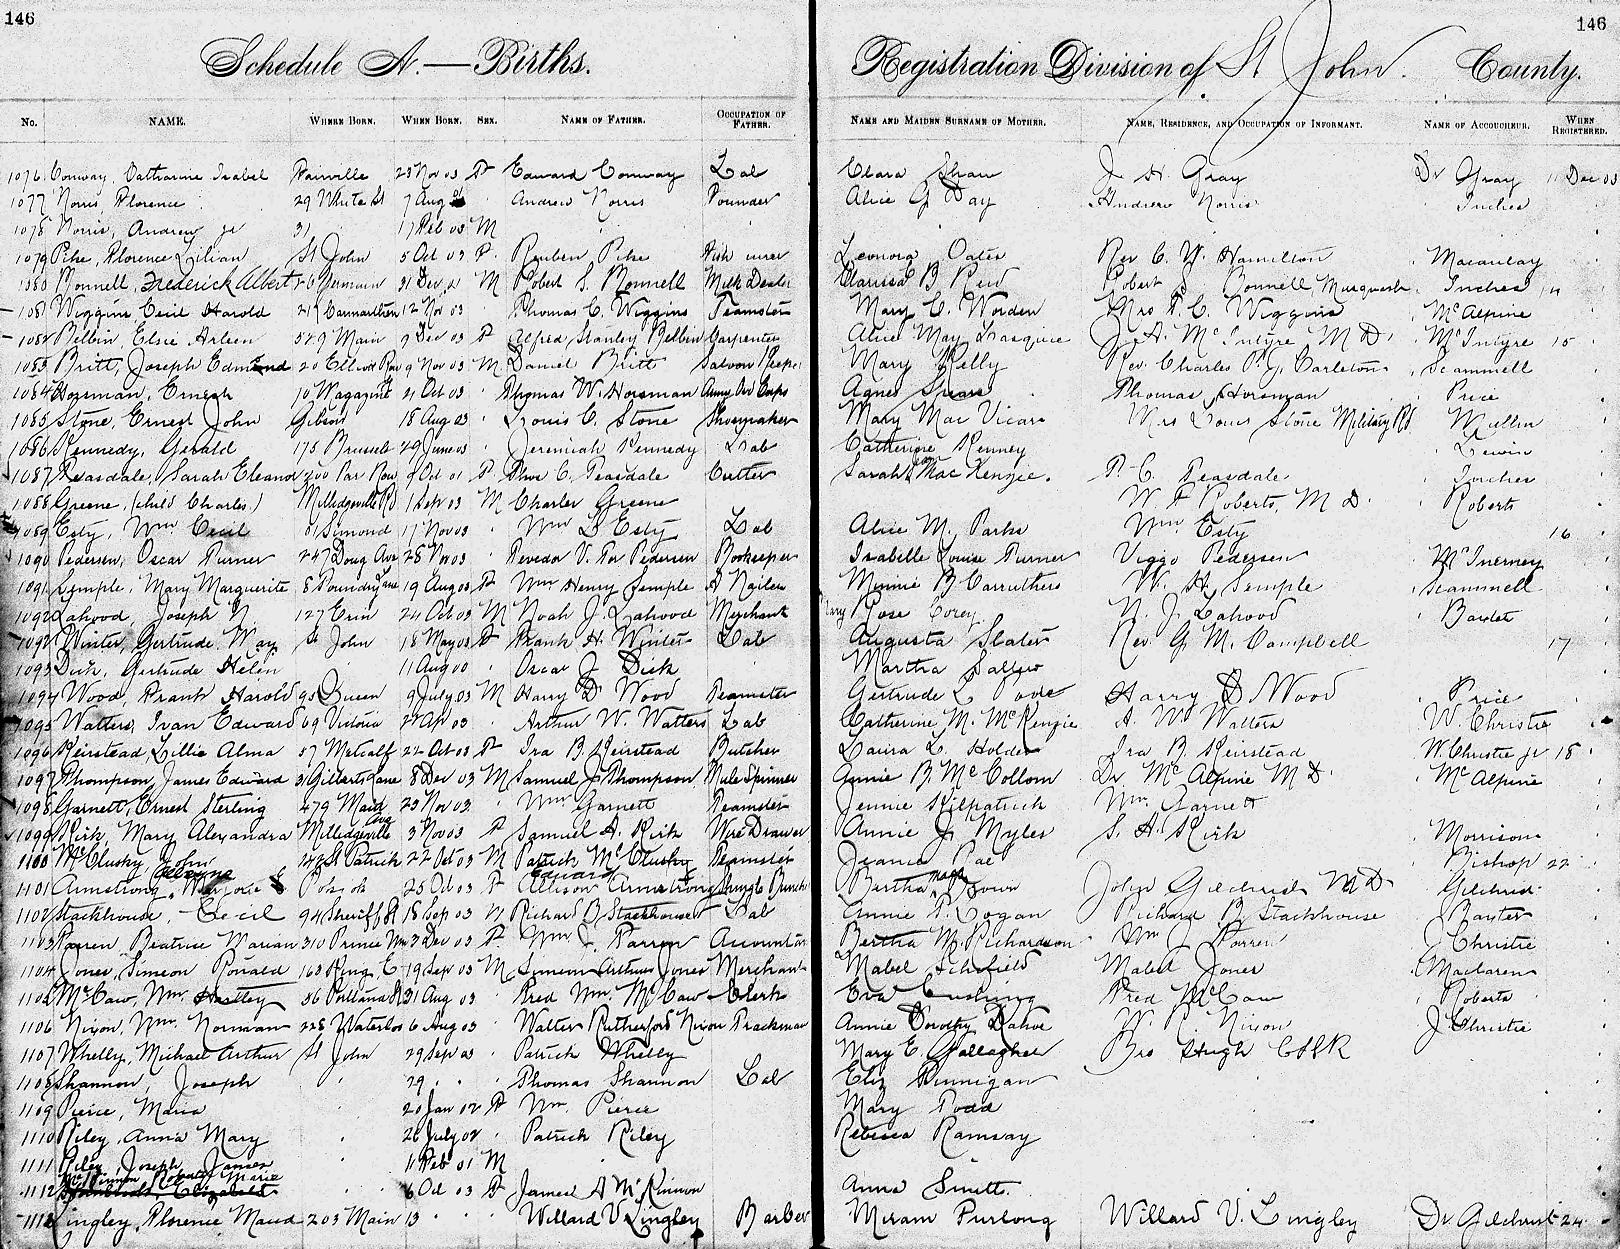 146 146
Schedule A.—Births. Registration Division of St John. County.
No. NAME. WHERE BORN. WHEN BORN. SEX. NAME OF FATHER. OCCUPATION OF FATHER. NAME AND MAIDEN SURNAME OF MOTHER. NAME, RESIDENCE, AND OCCUPATION OF INFORMANT. NAME OF ACCOUCHEUR. WHEN REGISTERED.
1076 Conway, Catharine Isabel Fairville 23 Nov 03 F Edward Conway Lab Clara Shaw J H Gray Dr Gray 11 Dec 03
1077 Norris, Florence 29 White St 7 Aug F Andrew Norris Founder Alice G Day Andrew Norris Inches
1078 Norris, Andrew jr 31 17 Feb 03 M
1079 Pike, Florence Lilian St John 5 Oct 03 F. Reuben Pike Fish curer Leonora Oates Rev C. W. Hamilton Macaulay
1080 Bonnell, Frederick Albert Germain 31 Dec M Robert S. Bonnell Milk Dealer Clarissa B Reid Robert S Bonnell, Inches 14
1081 Wiggins Cecil Harold 219 Carmarthen 12 Nov 03 Thomas C. Wiggins Teamster Mary C. Worden Mrs T. C. Wiggins McAlpine
1082 Belbin, Elsie Arleen 529 Main 9 Dec 03 F Alfred Stanley Belbin Carpenter Alice May J. A. McIntyre M D. McIntyre 15
1083 Britt, Joseph Edmund 20 Elliott Row 9 Nov 03 M Daniel Britt Saloon Keeper Mary Kelly Rev. Charles P. J. Carleton Scammell
1084 Horsman, Ernest 10 Magazine St 21 Oct 03 Thomas W. Horsman Army Ord Corps Agnes Thomas Horsman Price
1085 Stone, Ernest John Gibson 18 Aug 03 Louis C. Stone Shoemaker Mary Mac Vicar Mrs Louis Stone Military Rd Mullin
1086 Kennedy, Gerald 175 Brussels 29 June 03 Jeremiah Kennedy Lab Catherine Kenney Lewin
1087 Teasdale, Sarah Eleanor 200 Par Row 9 Oct 01 F Thos C. Teasdale Cutter Sarah MacKenzie. T. C. Teasdale Inches
1088 Greene, (child Charles) Millidgeville Rd 1 Sep 03 M Charles Greene W. F Roberts, M D. Roberts
1089 Esty, Wm Cecil 81 Simond 17 Nov 03 Wm D Esty Lab Alice M. Parks Wm Esty 16
1090 Pedersen, Oscar Turner 247 Doug Ave 28 Nov 03 V. Pedersen Bookkeeper Isabelle Louise Turner Viggo Pedersen McInerney
1091 Semple, Mary Marguerite 8 Foundry Lane 19 Aug 03 F Wm Henry Semple A Nailer Minnie B Carruthers W. H Semple Scammell
1092 Lahood, Joseph N 127 Erin 24 Oct 03 M Noah J. Lahood Merchant Mary Rose Corey N. J. Lahood Baxter
1092 Winter, Gertrude May St John 18 May 03 F Frank H. Winter Lab Augusta Slater Rev. G. M. Campbell 17
1093 Dick, Gertrude Helen 11 Aug 00 Oscar J Dick Martha Sallow
1094 Wood, Frank Harold 95 Queen 9 July 03 M Harry D Wood Teamster Gertrude L Harry D Wood Price
1095 Watters, Ivan Edward 69 Victoria 27 Ap 03 Arthur W. Watters Lab Catherine M. McKenzie A. W Watters W. Christie
1096 Keirstead, Lillie Alma 57 Metcalf 22 Oct 03 F Ira B. Keirstead Butcher Laura L. Holder Ira B Keirstead W Christie jr 18
1097 Thompson, James Edward 31 Gilberts Lane 8 Dec 03 M Samuel J Thompson Mule Spinner Annie B. McCollom Dr McAlpine M D. McAlpine
1098 Garnett, Ernest Sterling 479 Main 23 Nov 03 Wm Garnett Teamster Jennie Kilpatrick Wm. Garnett
1099 Kirk, Mary Alexandra Millidgeville Ave 3 Nov 03 F Samuel A. Kirk Wire Drawer Annie J Myles S. A. Kirk Morrison
1100 McClusky John 43 St Patrick 22 Oct 03 M Patrick McClusky Teamster Bishop 22
1101 Armstrong, Marjorie E 25 Oct 03 F Edward Allison Armstrong Shingle Bunch Bertha Brown John Gilchrist M D Gilchrist
1102 Stackhouse, Cecil 94 Sheriff St 18 Sep 03 M Richard B Stackhouse Lab Annie F. Logan Richard B. Stackhouse Baxter
1103 Parren Beatrice Marian 310 Prince Wm 3 Dec 03 F. Wm. J. Parren Accountant Bertha M. Richardson Wm J Parren J Christie
1104 Jones, Simeon Ronald 163 King, E 19 Sep 03 M Simeon Arthur Jones Merchant Mabel Schofield Mabel Jones Maclaren
1105 McCaw, Wm. Hastley 56 Portland St 31 Aug 03 Fred Wm. McCaw Clerk Eva Cushing Fred McCaw Roberts
1106 Nixon, Wm. Norman 228 Waterloo 6 Aug 03 Walter Rutherford Nixon Trackman Annie Dorothy W. R. Nixon J Christie
1107 Whelly, Michael Arthur St John 29 Sep 03 Patrick Whelly Mary E. Gallagher Bro Hugh CSSR
1108 Shannon, Joseph 29 Thomas Shannon Lab Eliz Finnigan
1109 Pierce, Maria 20 Jan 02 F Wm. Pierce Mary Todd
1110 Riley, Anna Mary 26 July 02 Patrick Riley Rebecca Ramsay
1111 Riley, Joseph James 11 Feb 01 M
1112 McKinnon Roberta Marie 6 Oct 03 F James A McKinnon Anna Smith.
1112 Lingley, Florence Maud 203 Main 13 Willard V Lingley Barber Miriam Furlong Willard V. Lingley Dr. Gilchrist 24